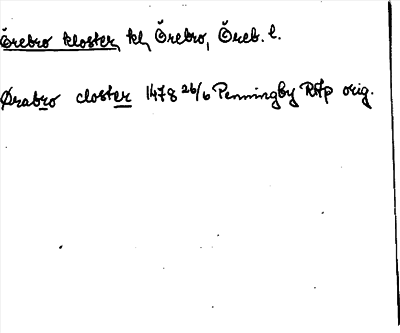 Örebro kloster, kl, Örebro, Öreb. l.
Ørabro closter 1478 26/6 Penningby RAp orig.